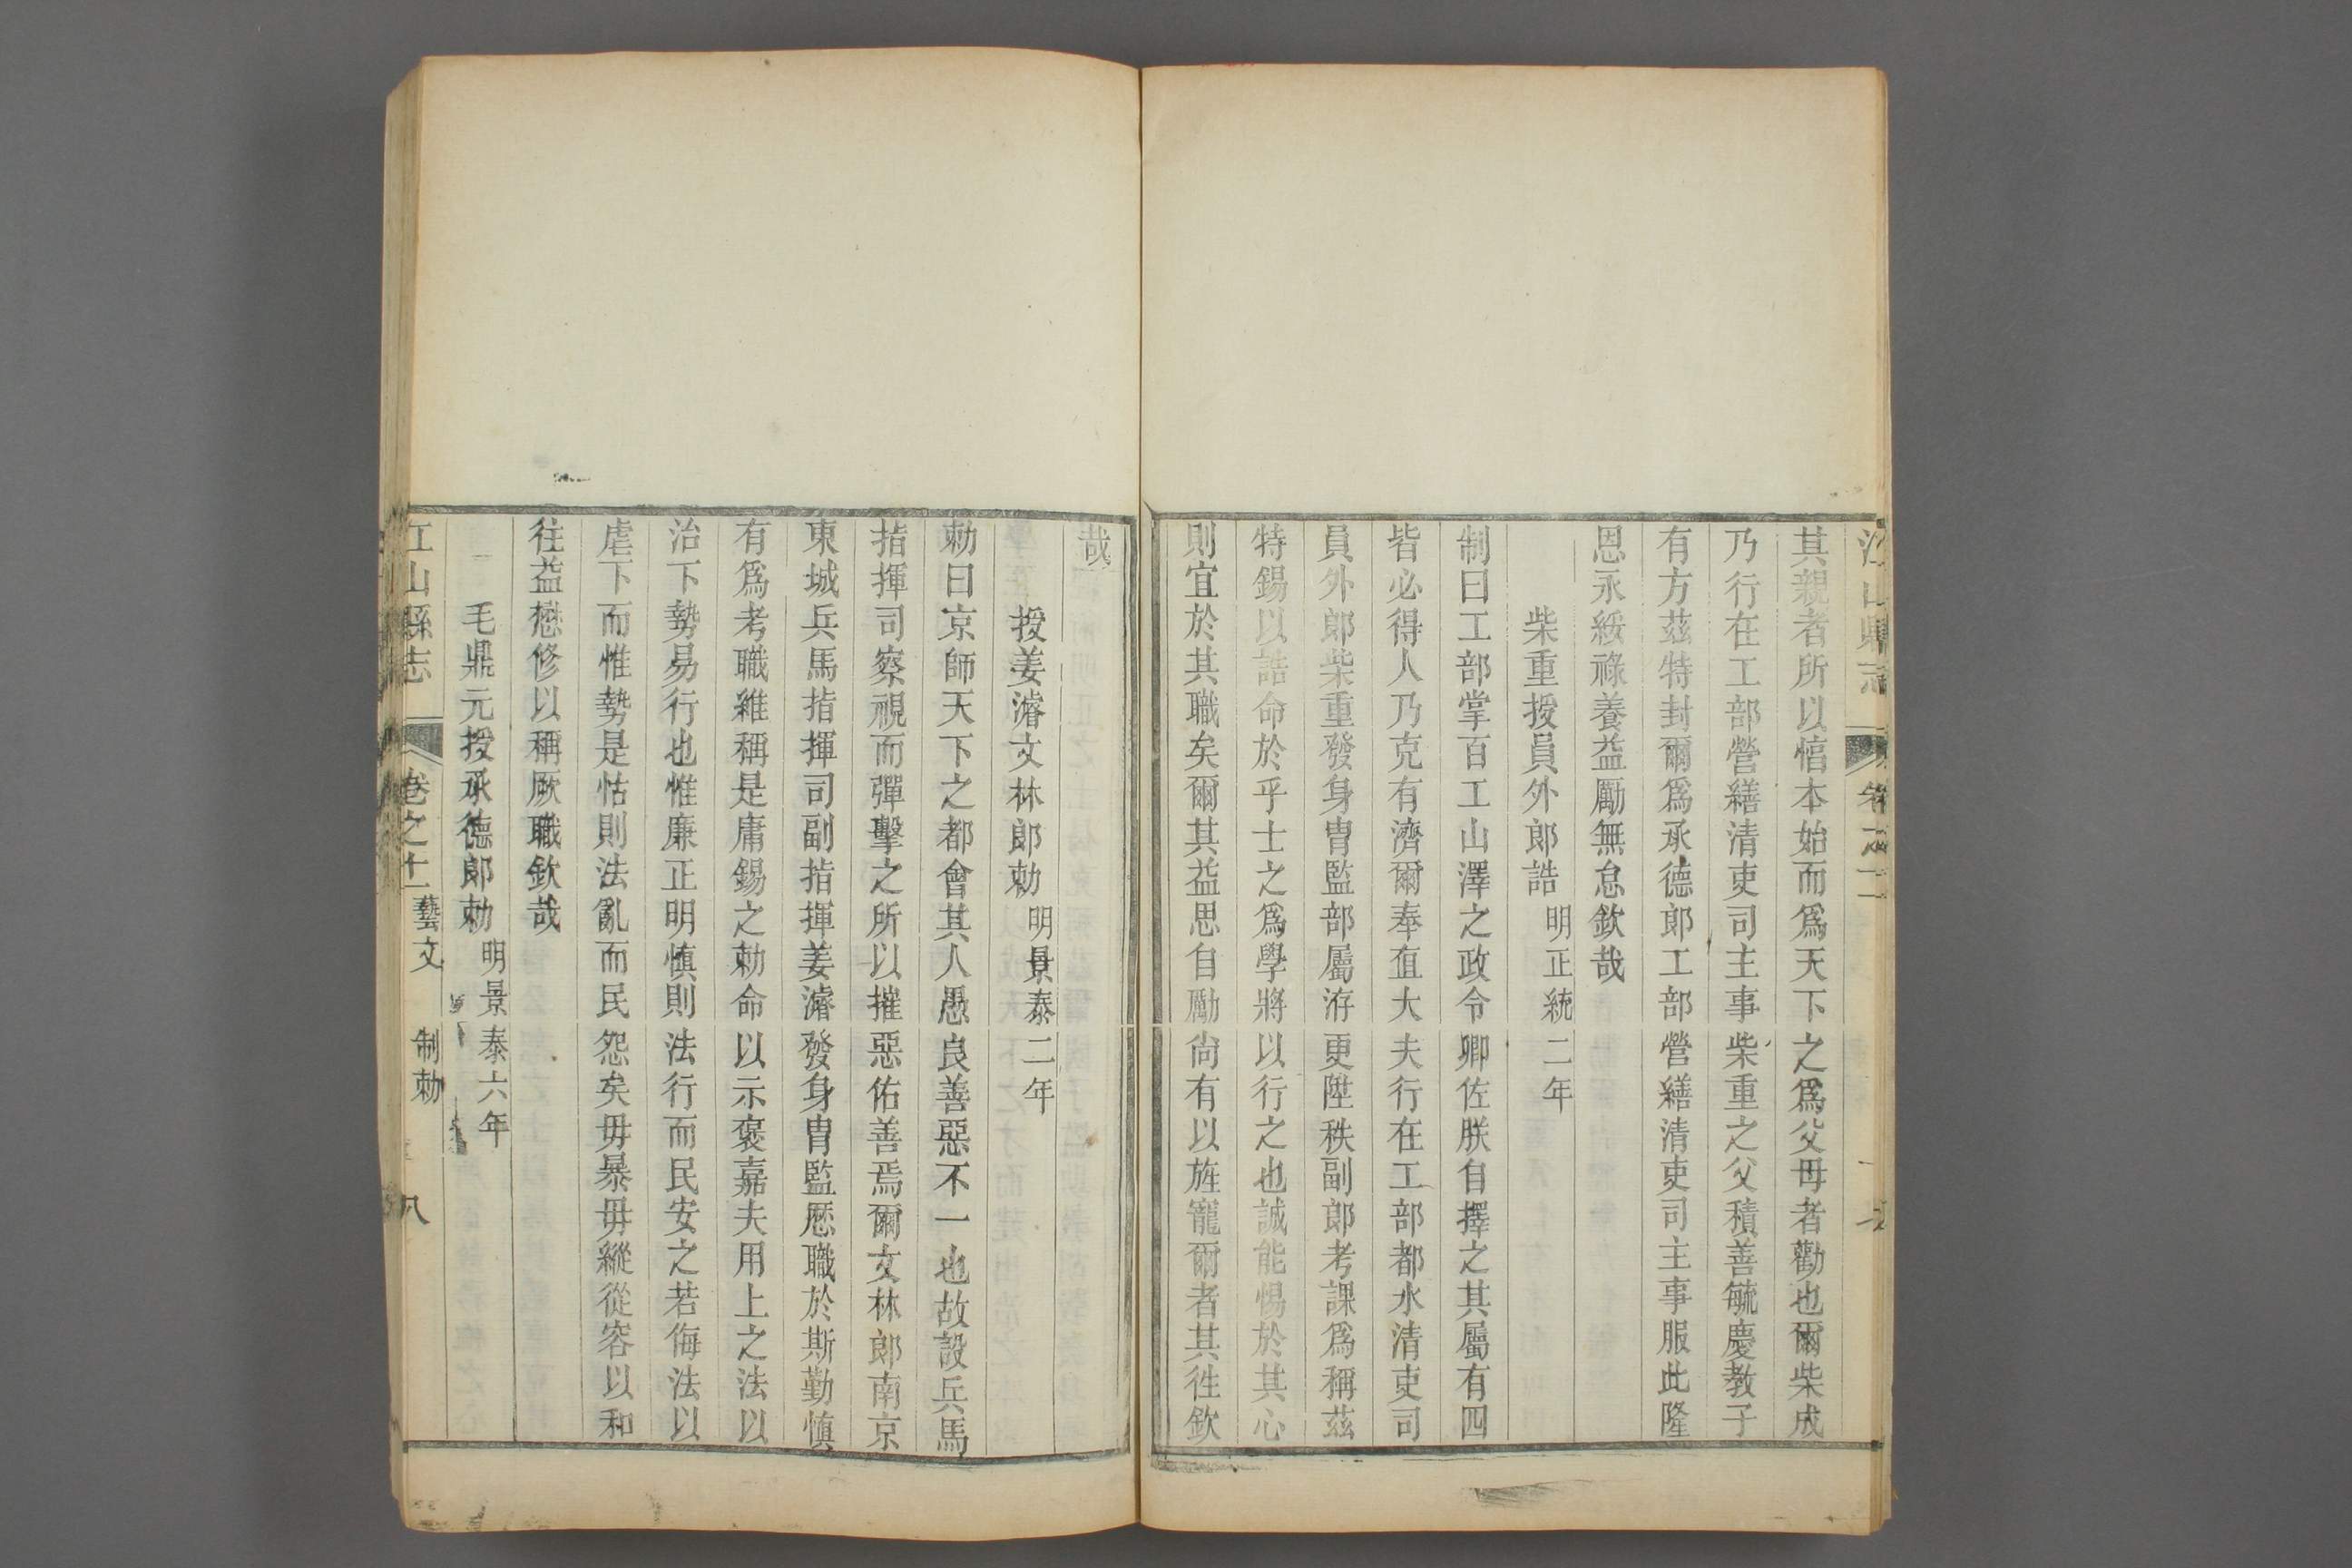 其親者所以惇本始而爲天下之爲父母者勸也爾柴成
乃行在工部營繕清吏司主事柴重之父積善毓慶教子
有方茲特封爾爲承德郎工部營繕清吏司主事服此隆
恩永綏祿養益勵無怠欽哉
柴重授員外郎誥 明正統二年
制曰工部掌百工山澤之政令卿佐朕自擇之其屬有四
皆必得人乃克有濟爾奉直大夫行在工部都水清吏司
員外郎柴重發身胄監部屬洊更陞秩副郎考課爲稱茲
特錫以誥命於乎士之爲學將以行之也誠能惕於其心
則宜於其職矣爾其益思自勵尙有以旌寵爾者其徃欽
哉
授姜濬文林郎勅 明景泰二年
勅曰京師天下之都會其人愚良善惡不一也故設兵馬
指揮司察視而彈擊之所以摧惡佑善焉爾文林郎南京
東城兵馬指揮司副指揮姜濬發身胄監歷職於斯勤慎
有爲考職維稱是庸錫之勅命以示褒嘉夫用上之法以
治下勢易行也惟廉正明慎則法行而民安之若侮法以
虐下而惟勢是怙則法亂而民怨矣毋暴毋縱從容以和
往益懋修以稱厥職欽哉
毛鼎元授承德郎勅 明景泰六年
江山縣志 卷之十一 藝文 制勅 八